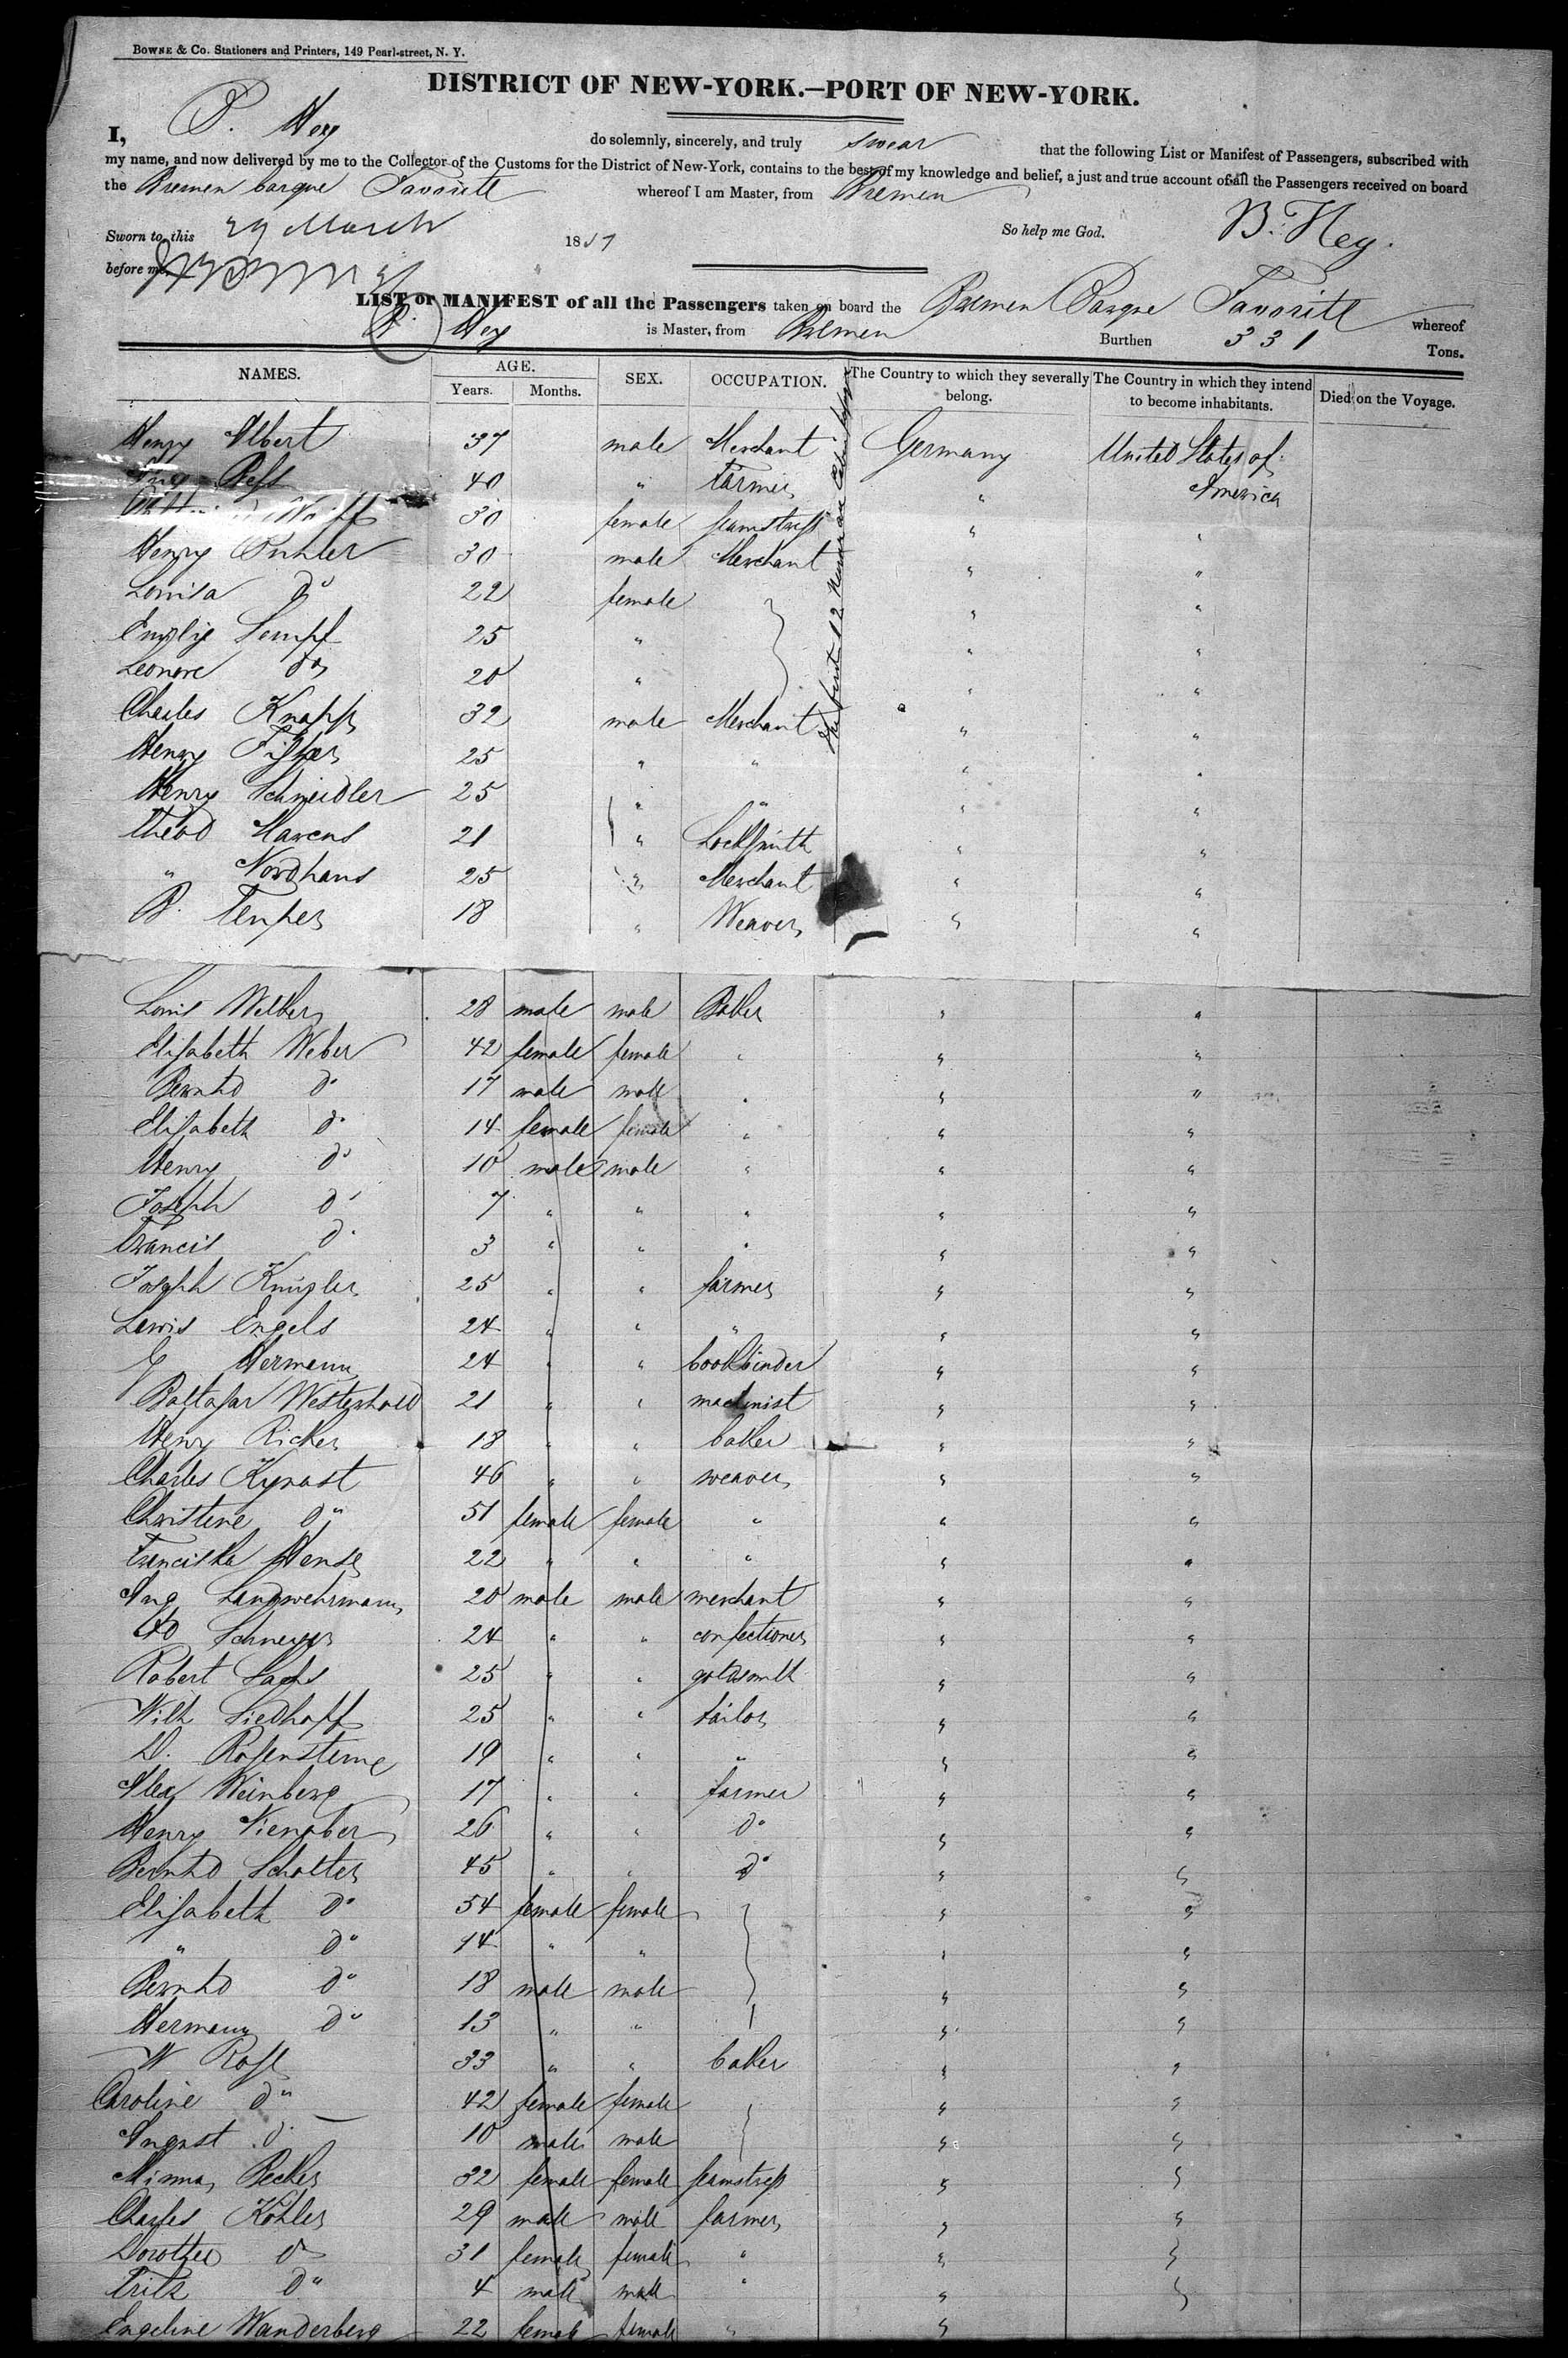 BOWNE & Co. Stationers and Printers, 149 Pearl-street, N. Y.
DISTRICT OF NEW-YORK.—PORT OF NEW-YORK.
I, B. Hey do solemnly, sincerely, and truly swear that the following List or Manifest of Passengers, subscribed with
my name, and now delivered by me to the Collector of the Customs for the District of New-York, contains to the best of my knowledge and belief, a just and true account of all the Passengers received on board
the Bremen barque Favorite whereof I am Master, from Bremen
Sworn to, this 29 March 1851 So help me God. B. Hey.
before me,
LIST or MANIFEST of all the Passengers taken on board the Bremen Barque Favorite whereof
B. Hey is Master, from Bremen Burthen 331 Tons.
NAMES. AGE. Years. Months. SEX. OCCUPATION. The Country to which they severally belong. The Country in which they intend to become inhabitants. Died on the Voyage.
Henry Albert 37 male Merchant Germany United States of
40 " Farmer " America
30 female seamstress " "
Henry 30 male Merchant " "
Louisa do 22 female " "
Emilie Sempf 25 " " "
Leonore do 20 " " "
Charles Knapp 32 male Merchant " "
Henry Fisher 25 " " " "
Henry Schneidler 25 " " " "
Theod Marcus 21 " Locksmith " "
" Nordhaus 25 " Merchant " "
B. Temper 18 " Weaver " "
Louis Welker 28 male male Baker " "
Elisabeth Weber 42 female female " " "
Bernhd do 17 male male " " "
Elisabeth do 14 female female " " "
Henry do 10 male male " " "
Joseph do 7 " " " " "
Francis do 3 " " " " "
Joseph Knugler 25 " " farmer " "
Lewis Engels 24 " " " " "
Hermann 24 " " bookbinder " "
Baltasar Westerhold 21 " " machinist " "
Henry Ricker 18 " " baker " "
Charles Kynast 46 " " weaver " "
Christine do 51 female female " " "
Franciska Hense 22 " " " " "
Aug Landwehrmann 20 male male merchant " "
24 " " confectioner " "
Robert Sachs 25 " " goldsmith " "
Wilh Siedhoff 25 " " tailor " "
D. Rosensterne 19 " " " " "
Alex Weinberg 17 " " farmer " "
Henry Nienaber 26 " " do " "
Bernhd Scholter 45 " " do " "
Elisabeth do 54 female female " "
" do 14 " " " "
Bernhd do 18 male male " "
Hermann do 13 " " " "
W Rose 33 " " baker " "
Caroline do 42 female female " "
August do 10 male male " "
Minna Becker 32 female female seamstress " "
Charles Kohler 29 male male farmer " "
Dorothee do 31 female female " " "
Fritz do 4 male male " " "
Engeline Wanderberg 22 female female " "